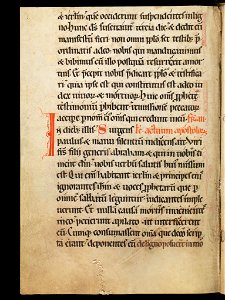 & ierlm que occiderunt suspendentes in lig
no. Hunc ds suscitauit tercia die & dedit eu
manifestu fieri non omni pplo sed testib; p
ordinatis a deo nobis qui manducauim;
& bibimus cu illo postqua resurrexit a mor
tuis & precepit nobis predicare pplo & testifica
ri quia ipse est qui constitutus est a deo iu
dex uiuor & mortuor. Huic oms pphete
testimoniu phibent remissione peccator
accipe p nom ei oms qui credunt in eu.
In dieb; illis. Surgens Lc actuum apostolor
paulus & manu silentiu indicens ait. Viri
frs filii generis abraham & qui in nobis ti
ment dm nobis uerbu salutis hui missum
est. Qui eni habitant ierlm & principes ei
ignorantes ihm & uoces pphetaru que p
omne sabbatu leguntur iudicantes imple
uerunt. Et nulla causa mortis inuenient
in eo petierunt a pilato ut interficerent
eu. Cumque consummassent omia que de eo scrip
ta erant deponentes eu de ligno posuer in mo